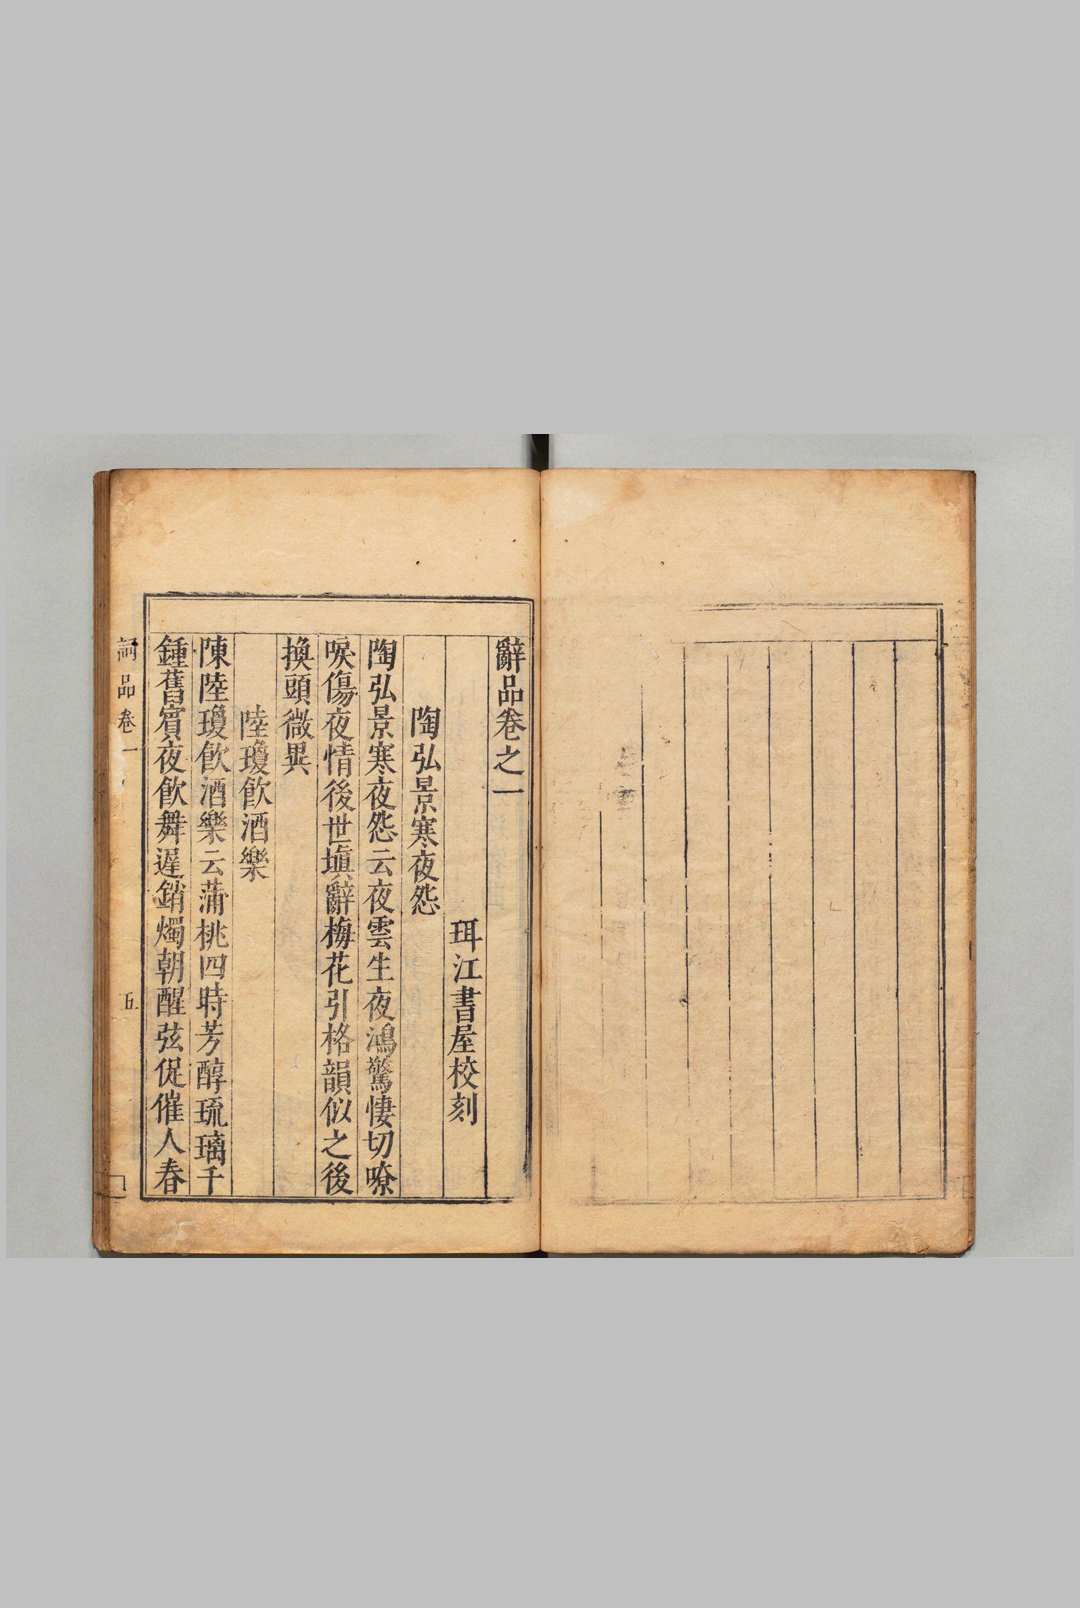 辭品卷之一
珥江書屋校刻
陶弘景寒夜怨
陶弘景寒夜怨云夜雲生夜鴻驚悽切嘹
唳傷夜情後世塡辭梅花引格韻似之後
換頭微異
陸瓊飮酒樂
陳陸瓊飮酒樂云蒲桃四時芳醇琉璃千
鍾舊賓夜飮舞遲銷燭朝醒弦促催人春
詞品卷一
五